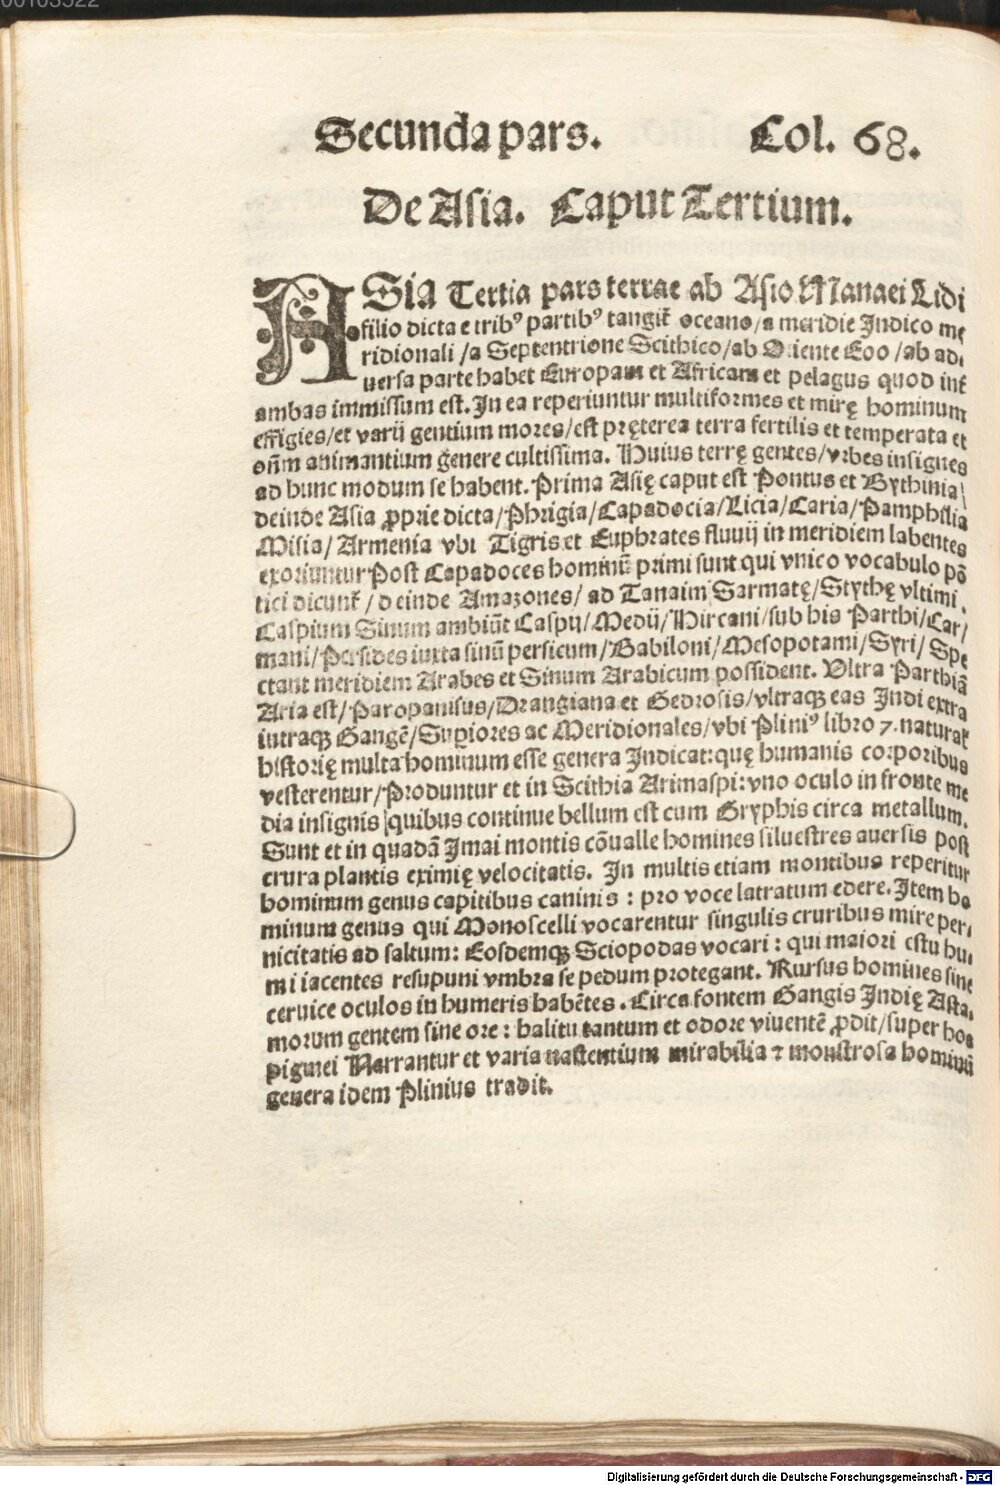 00103522
Secunda pars. Col. 68.
De Asia. Caput Tertium.
ASia Tertia pars terrae ab Asio Manaei Lidi
filio dicta e tribꝰ partibꝰ tangit᷑ oceano/a meridie Indico me
ridionali /a Septentrione Scithico/ab Oriente Eoo /ab ad,
uersa parte habet Europam et Africam et pelagus quod int᷑
ambas immissum est. In ea reperiuntur multiformes et mirę hominum
effigies/et varij gentium mores/est pręterea terra fertilis et temperata et
oñm animantium genere cultissima. Huius terrę gentes/vrbes insignes
ad hunc modum se habent. Prima Asię caput est Pontus et Bythinia/
deinde Asia ꝓprie dicta/Phrigia/Capadocia/Licia/Caria/Pamphilia
Misia/ Armenia vbi Tigris et Euphrates fluuij in meridiem labentes
exoriuntur Post Capadoces hominū primi sunt qui vnico vocabulo põ
tici dicunt᷑/ deinde Amazones/ ad Tanaim Sarmatę/Scythę vltimi,
Caspium Sinum ambiūt Caspij/Medij/Hircani/sub his Parthi/Car/
mani/Persides iuxta sinū persicum/Babiloni/Mesopotami/Syri/ Spe
ctant meridiem Arabes et Sinum Arabicum possident. Vltra Parthiā
Aria est/Paropanisus/Drangiana et Gedrosis/vltraqꝫ eas Indi extra
intraqꝫ Gangē/Supiores ac Meridionales/vbi Pliniꝰ libro 7. natural᷑
historię multa hominum esse genera Indicat: quę humanis corporibus
vesterentur/Produntur et in Scithia Arimaspi: vno oculo in fronte me
dia insignis quibus continue bellum est cum Gryphis circa metallum.
Sunt et in quadā Imai montis cōualle homines siluestres auersis post
crura plantis eximię velocitatis. In multis etiam montibus reperitur
hominum genus capitibus caninis : pro voce latratum edere. Item ho
minum genus qui Monoscelli vocarentur singulis cruribus mire per,
nicitatis ad saltum: Eosdemqꝫ Sciopodas vocari : qui maiori estu hu,
mi iacentes resupuni vmbra se pedum protegant. Rursus homines sine
ceruice oculos in humeris habētes. Circa fontem Gangis Indię Asta,
morum gentem sine ore : halitu tantum et odore viuentē ꝓdit/super hos
pigmei Narrantur et varia nastentium mirabilia ⁊ monstrosa hominū
genera idem Plinius tradit.
Digitalisierung gefördert durch die Deutsche Forschungsgemeinschaft - DFG